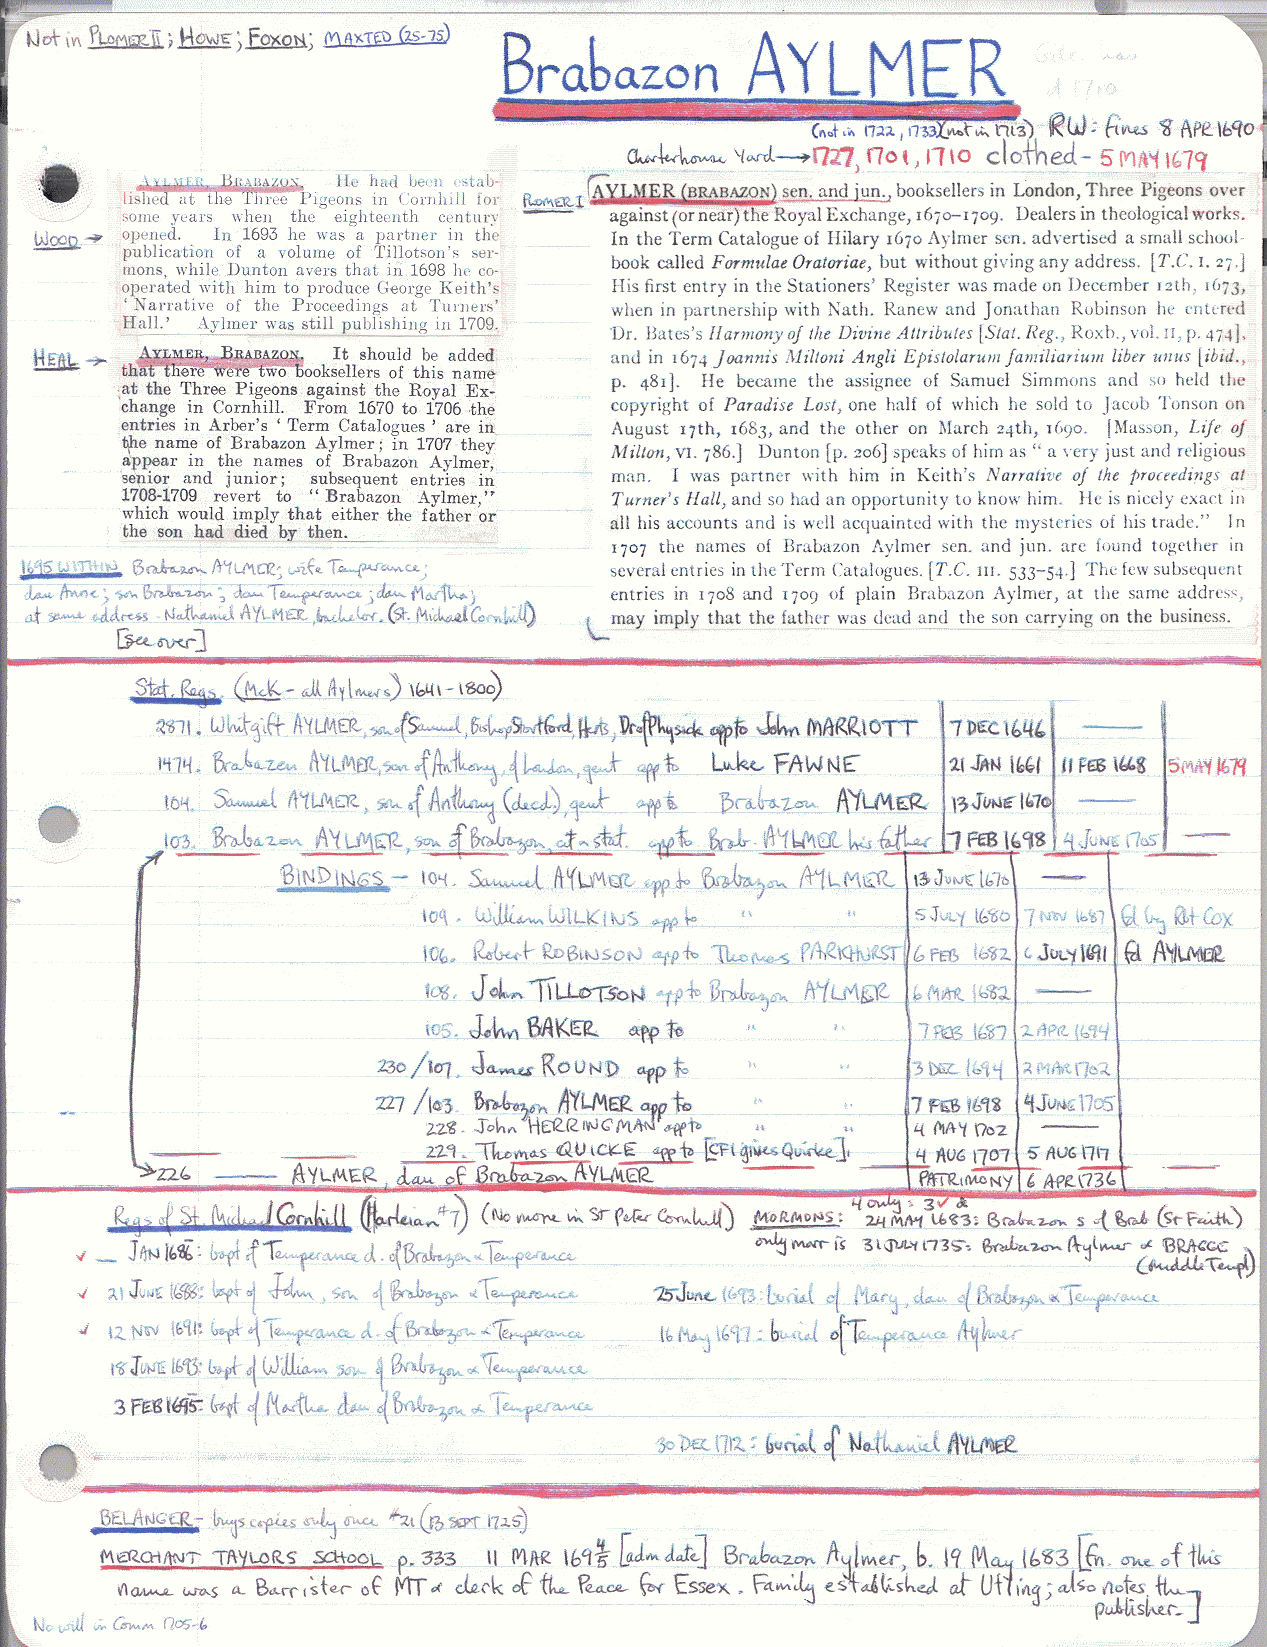 Not in PLOMER II; HOWE; FOXON; MAXTED (25-75)
Brabazon AYLMER
d 1710
(not in 1722, 1733)(not in 1713) RW: fines 8 APR 1690
Charterhouse Yard → 1727, 1701, 1710 clothed - 5 MAY 1679
WOOD →
AYLMER, BRABAZON. He had been estab-
lished at the Three Pigeons in Cornhill for
some years when the eighteenth century
opened. In 1693 he was a partner in the
publication of a volume of Tillotson's ser-
mons, while Dunton avers that in 1698 he co-
operated with him to produce George Keith's
'Narrative of the Proceedings at Turners'
Hall.' Aylmer was still publishing in 1709.
HEAL →
AYLMER, BRABAZON. It should be added
that there were two booksellers of this name
at the Three Pigeons against the Royal Ex-
change in Cornhill. From 1670 to 1706 the
entries in Arber's 'Term Catalogues' are in
the name of Brabazon Aylmer; in 1707 they
appear in the names of Brabazon Aylmer,
senior and junior; subsequent entries in
1708-1709 revert to "Brabazon Aylmer,"
which would imply that either the father or
the son had died by then.
PLOMER I
AYLMER (BRABAZON) sen. and jun., booksellers in London, Three Pigeons over
against (or near) the Royal Exchange, 1670–1709. Dealers in theological works.
In the Term Catalogue of Hilary 1670 Aylmer sen. advertised a small school-
book called Formulae Oratoriae, but without giving any address. [T.C. I. 27.]
His first entry in the Stationers' Register was made on December 12th, 1673,
when in partnership with Nath. Ranew and Jonathan Robinson he entered
Dr. Bates's Harmony of the Divine Attributes [Stat. Reg., Roxb., vol. II, p. 474],
and in 1674 Joannis Miltoni Angli Epistolarum familiarium liber unus [ibid.,
p. 481]. He became the assignee of Samuel Simmons and so held the
copyright of Paradise Lost, one half of which he sold to Jacob Tonson on
August 17th, 1683, and the other on March 24th, 1690. [Masson, Life of
Milton, VI. 786.] Dunton [p. 206] speaks of him as "a very just and religious
man. I was partner with him in Keith's Narrative of the proceedings at
Turner's Hall, and so had an opportunity to know him. He is nicely exact in
all his accounts and is well acquainted with the mysteries of his trade." In
1707 the names of Brabazon Aylmer sen. and jun. are found together in
several entries in the Term Catalogues. [T.C. III. 533–54.] The few subsequent
entries in 1708 and 1709 of plain Brabazon Aylmer, at the same address,
may imply that the father was dead and the son carrying on the business.
1695 WITHIN Brabazon AYLMER; wife Temperance;
dau Anne; son Brabazon; dau Temperance; dau Martha;
at same address - Nathaniel AYLMER, bachelor. (St. Michael Cornhill)
[see over]
Stat. Regs. (McK - all Aylmers) 1641-1800)
2871. Whitgift AYLMER, son of Samuel, Bishop Stortford, Herts, Dr of Physick app to John MARRIOTT 7 DEC 1646 —
1474. Brabazen AYLMER, son of Anthony, of London, gent app to Luke FAWNE 21 JAN 1661 11 FEB 1668 5 MAY 1679
104. Samuel AYLMER, son of Anthony (decd.), gent app to Brabazon AYLMER 13 JUNE 1670 —
103. Brabazon AYLMER, son of Brabazon, cit & stat. app to Brab. AYLMER his father 7 FEB 1698 4 JUNE 1705 —
BINDINGS - 104. Samuel AYLMER app to Brabazon AYLMER 13 JUNE 1670 —
109. William WILKINS app to " " 5 JULY 1680 7 NOV 1687 fd by Rbt Cox
106. Robert ROBINSON app to Thomas PARKHURST 6 FEB 1682 6 JULY 1691 fd AYLMER
108. John TILLOTSON app to Brabazon AYLMER 6 MAR 1682 —
105. John BAKER app to " " 7 FEB 1687 2 APR 1694
230/107. James ROUND app to " " 3 DEC 1694 2 MAR 1702
227/103. Brabazon AYLMER app to " " 7 FEB 1698 4 JUNE 1705
228. John HERRINGMAN app to " " 4 MAY 1702 —
229. Thomas QUICKE app to [CFI gives Quirke] 4 AUG 1707 5 AUG 1717
226 — AYLMER, dau of Brabazon AYLMER PATRIMONY 6 APR 1736
Regs of St. Michael Cornhill (Harleian #7) (No more in St Peter Cornhill)
MORMONS: 4 only: 3 ✓ &
24 MAY 1683: Brabazon s of Brab (St Faith)
only marr is 31 JULY 1735: Brabazon Aylmer & BRAGGE
(Middle Templ)
✓ — JAN 1686: bapt of Temperance d. of Brabazon & Temperance
✓ 21 JUNE 1688: bapt of John, son of Brabazon & Temperance
25 June 1693: burial of Mary, dau of Brabazon & Temperance
✓ 12 NOV 1691: bapt of Temperance d. of Brabazon & Temperance
16 May 1697: burial of Temperance Aylmer
18 JUNE 1693: bapt of William son of Brabazon & Temperance
3 FEB 1695: bapt of Martha dau of Brabazon & Temperance
30 DEC 1712: burial of Nathaniel AYLMER
BELANGER - buys copies only once #21 (13 SEPT 1725)
MERCHANT TAYLORS SCHOOL p. 333 11 MAR 1694/5 [adm date] Brabazon Aylmer, b. 19 May 1683 [fn. one of this
name was a Barrister of MT & clerk of the Peace for Essex. Family established at Utting; also notes the
publisher.]
No will in Comm 1705-6